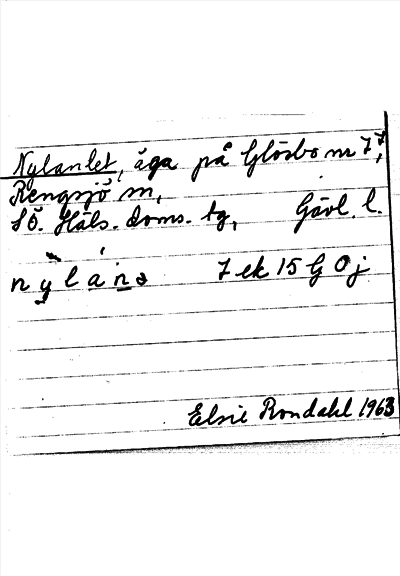 Nylanlet, äga på Glösbo nr 77,
Rengsjö sn,
SÖ. Häls. doms. tg, Gävl. l.
nylánə 7 ek 15 G Öj
Elsie Rondahl 1963